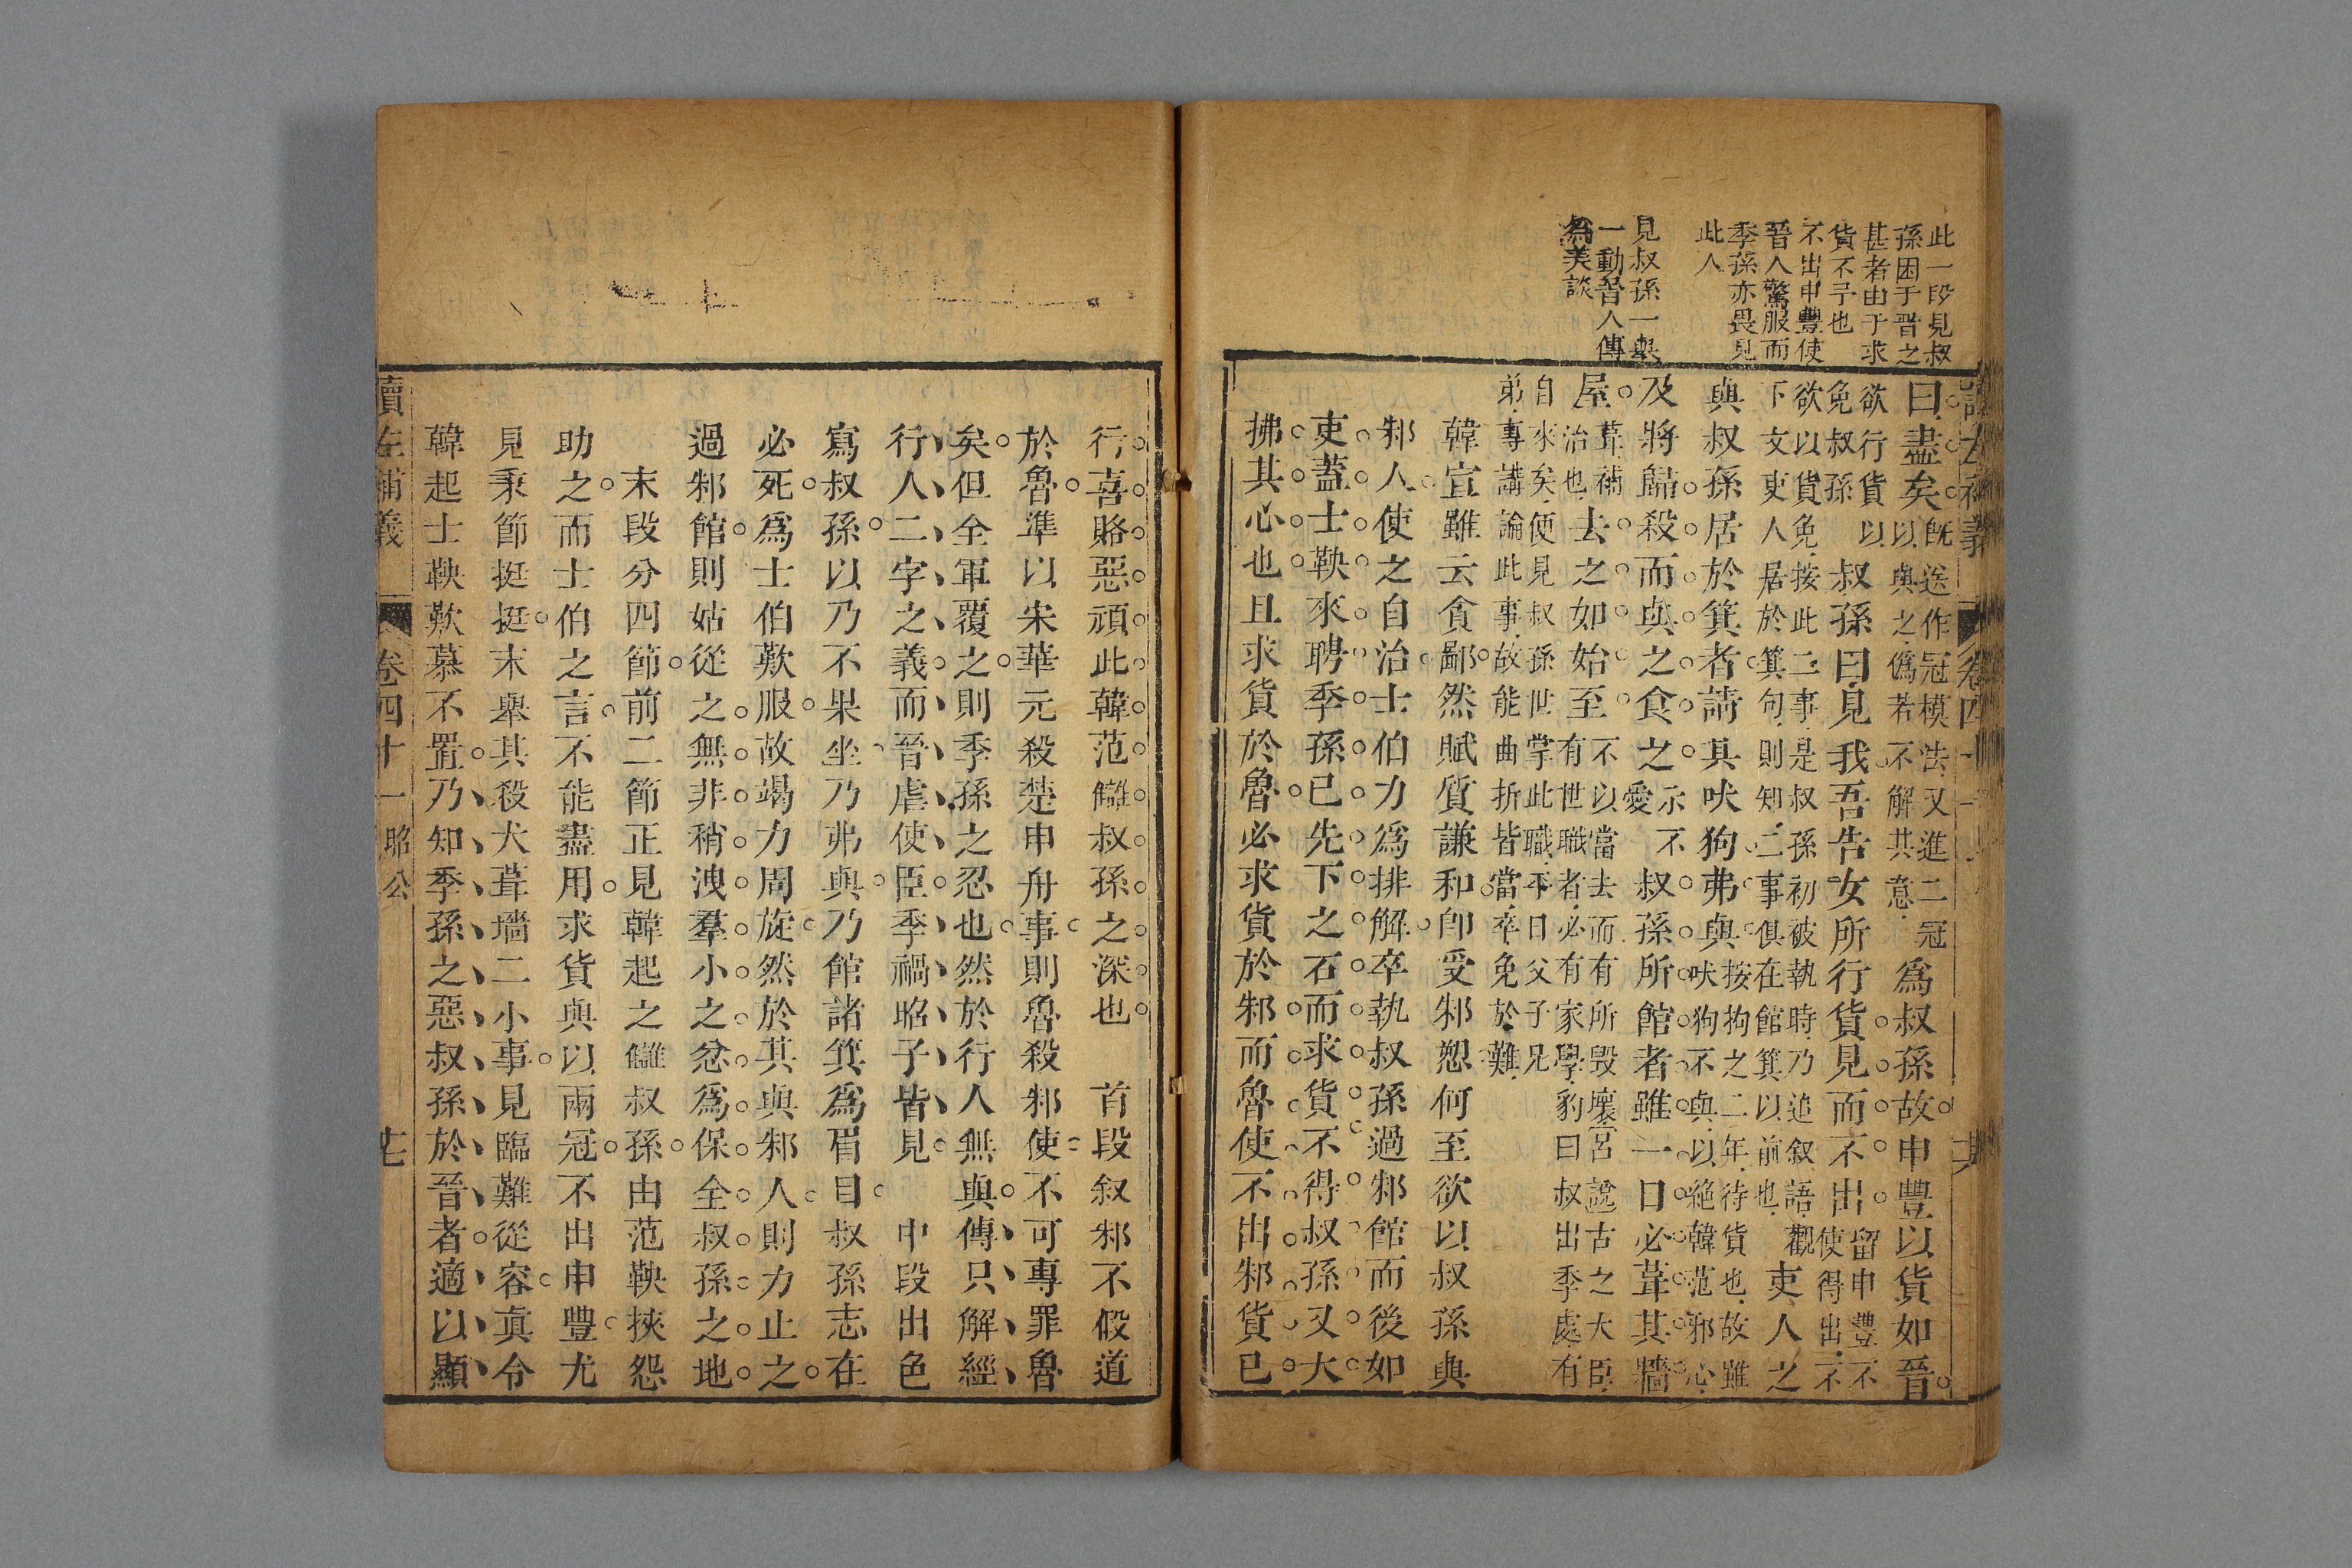 此一段見叔
孫困于晋之
甚者由于求
貨不予也
不出申豐使
晉人驚服而
季孫亦畏見
此人
見叔孫一舉
一動晉人傳
為美談
讀左補義
卷四十一
曰盡矣既送作冠模法又進二冠
以與之僞若不解其意
爲叔孫故申豐以貨如晉
欲行貨以
免叔孫
叔孫曰見我吾告女所行貨見而不出留申豐不
使得出不
欲以貨免按此二事是叔孫初被執時乃追叙語觀
下文吏人居於箕句則知二事俱在館箕以前也
吏人之
與叔孫居於箕者請其吠狗弗與按拘之二年待貨也故雖
吠狗不與以絶韓范邪心
及將歸殺而與之食之示不
愛
叔孫所館者雖一日必葺其牆
屋葺補
治也
去之如始至不以當去而有所毁壞宮說古之大臣
有世職者必有家學豹曰叔出季處有
自來矣便見叔孫世掌此職平日父子兄
弟專講論此事故能曲折皆當卒免於難
韓宣雖云貪鄙然賦質謙和卽受邾愬何至欲以叔孫與
邾人使之自治士伯力爲排解卒執叔孫過邾館而後如
吏蓋士鞅來聘季孫已先下之石而求貨不得叔孫又大
拂其心也且求貨於魯必求貨於邾而魯使不出邾貨已
行喜賂惡頑此韓范讎叔孫之深也　首段叙邾不假道
於魯準以宋華元殺楚申舟事則魯殺邾使不可專罪魯
矣但全軍覆之則季孫之忍也然於行人無與傳只解經
行人二字之義而晉虐使臣季禍昭子皆見　中段出色
寫叔孫以乃不果坐乃弗與乃館諸箕爲眉目叔孫志在
必死爲士伯歎服故竭力周旋然於其與邾人則力止之
過邾館則姑從之無非稍洩羣小之忿爲保全叔孫之地
末段分四節前二節正見韓起之讎叔孫由范鞅挾怨
助之而士伯之言不能盡用求貨與以兩冠不出申豐尤
見秉節挺挺末舉其殺犬葺墻二小事見臨難從容真令
韓起士鞅歎慕不置乃知季孫之惡叔孫於晉者適以顯
讀左補義
卷四十一
昭公